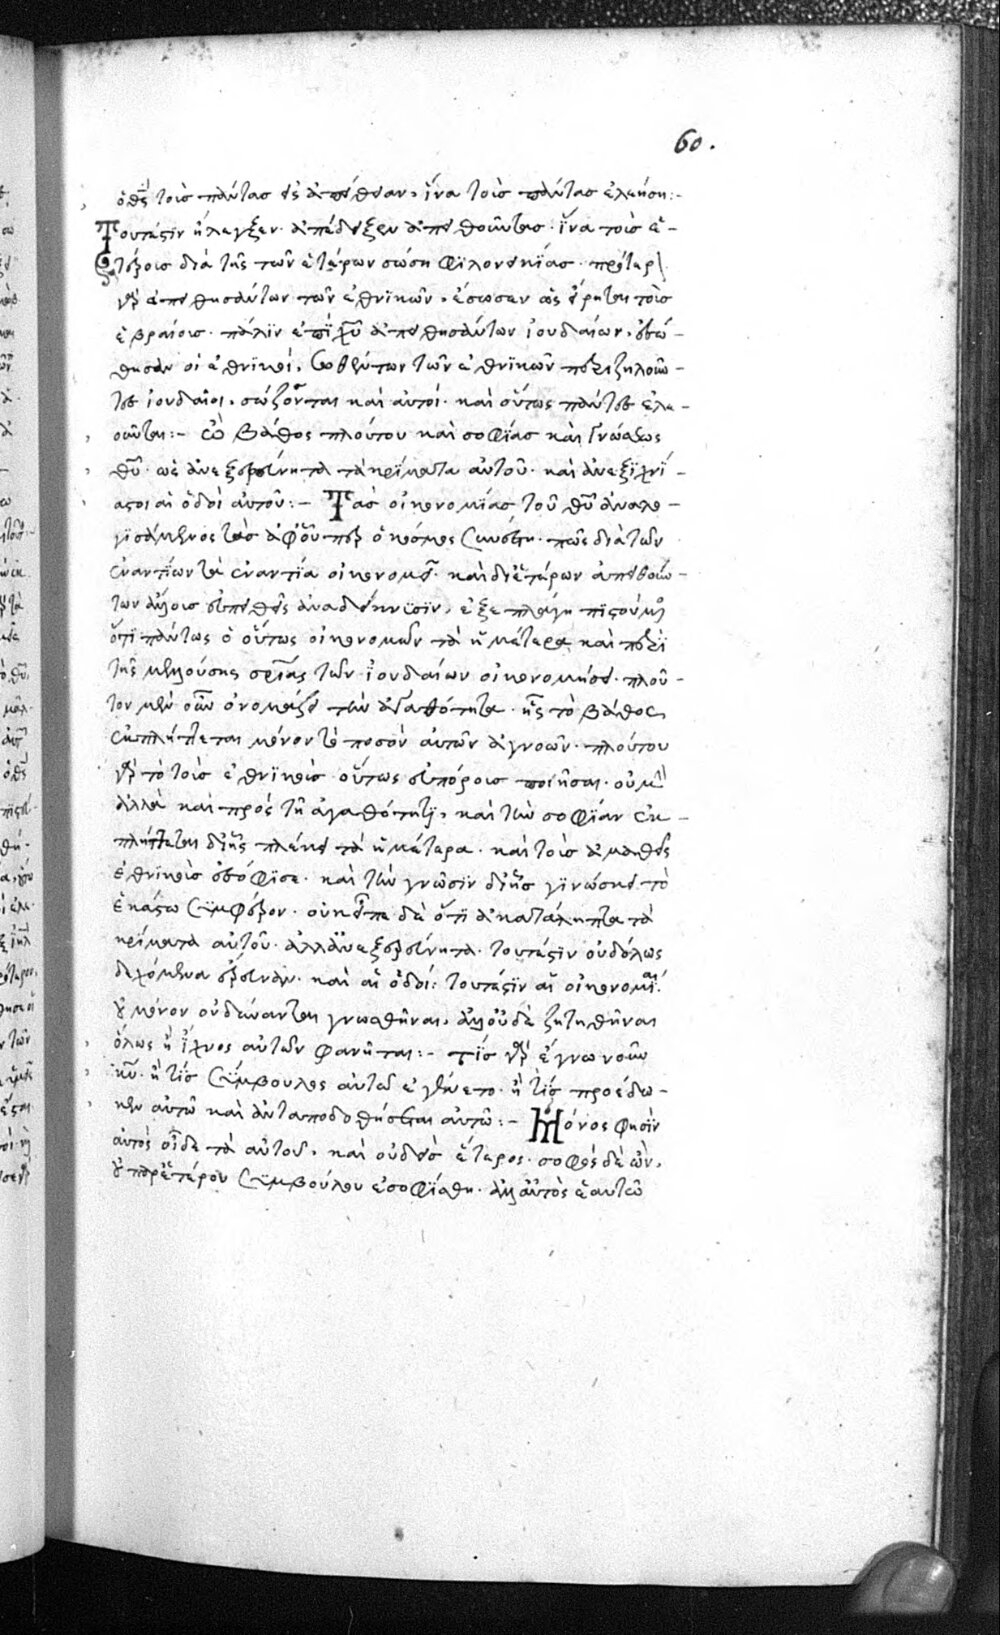 60.
ὁ θς τοὺς πάντας εἰς ἀπείθειαν, ἵνα τοὺς πάντας ἐλεήση:-
Τουτέστιν ἤλεγξεν· ἀπέδειξεν ἀπειθοῦντας· ἵνα τοὺς ἑ-
τέρους διὰ τῆς τῶν ἑτέρων σώση φιλονεικίας· πρότερον
γὰρ ἀπειθησάντων τῶν ἐθνικῶν, ἔσωσεν ὡς εἴρηται τοὺς
ἑβραίους· πάλιν ἐπὶ χυ ἀπειθησάντων ἰουδαίων, ἐσώ-
θησαν οἱ ἐθνικοί, τῶν ἐθνικῶν παραζηλοῦν-
ται ἰουδαῖοι, σώζονται καὶ αὐτοί· καὶ οὕτως πάντες ἐλε-
οῦνται:- ὦ βάθος πλούτου καὶ σοφίας καὶ γνώσεως
θυ· ὡς ἀνεξερεύνητα τὰ κρίματα αὐτοῦ· καὶ ἀνεξιχνί-
αστοι αἱ ὁδοὶ αὐτοῦ:- Τὰς οἰκονομίας τοῦ θυ ἀναλο-
γισάμενος τὰς ἀφοῦπερ ὁ κόσμος συνέστη· πῶς διὰ τῶν
ἐναντίων τὰ ἐναντία οἰκονομεῖ· καὶ δι ἑτέρων ἀπειθούν-
των ἄλλους εὐπειθεῖς ἀναδείκνυσιν, ἐξεπλάγη πιστούμενος
ὅτι πάντως ὁ οὕτως οἰκονομῶν τὰ ἡμέτερα καὶ περὶ
τῆς μελλούσης σρίας τῶν ἰουδαίων οἰκονομήσει· πλοῦ-
τον μὲν οὖν ὀνομάζει τὴν ἀγαθότητα· ἧς τὸ βάθος
ἐκπλήττεται μόνον τὸ ποσὸν αὐτῶν ἀγνοῶν· πλούτου
γὰρ τὸ τοὺς ἐθνικοὺς οὕτως εὐπόρους ποιῆσαι· οὐ μὴν
ἀλλὰ καὶ πρὸς τῆ ἀγαθότητι, καὶ τὴν σοφίαν ἐκ-
πλήττεται δι ἧς πλέκει τὰ ἡμέτερα· καὶ τοὺς ἀμαθεῖς
ἐθνικοὺς ἐσόφισε· καὶ τὴν γνῶσιν δι ἧς γινώσκει τὸ
ἑκάστω συμφέρον· οὐκ εἶπε δὲ ὅτι ἀκατάληπτα τὰ
κρίματα αὐτοῦ· ἀλλ ἀνεξερεύνητα· τουτέστιν οὐδόλως
δεχόμενα ἔρευναν· καὶ αἱ ὁδοί: τουτέστιν αἱ οἰκονομίαι·
οὐ μόνον οὐ δύνανται γνωσθῆναι, ἀλλ οὐδὲ ζητηθῆναι
ὅλως ἢ ἴχνος αὐτῶν φανῆται:- τίς γὰρ ἔγνω νοῦν
κυ· ἢ τίς σύμβουλος αὐτοῦ ἐγένετο· ἢ τίς προέδω-
κεν αὐτῶ καὶ ἀνταποδοθήσεται αὐτῶ:- Μόνος φησὶν
αὐτὸς οἶδε τὰ αὐτοῦ, καὶ οὐδεὶς ἕτερος· σοφὸς δὲ ὤν,
οὐ παρ ἑτέρου συμβούλου ἐσοφίσθη· ἀλλ αὐτὸς ἑαυτῶ